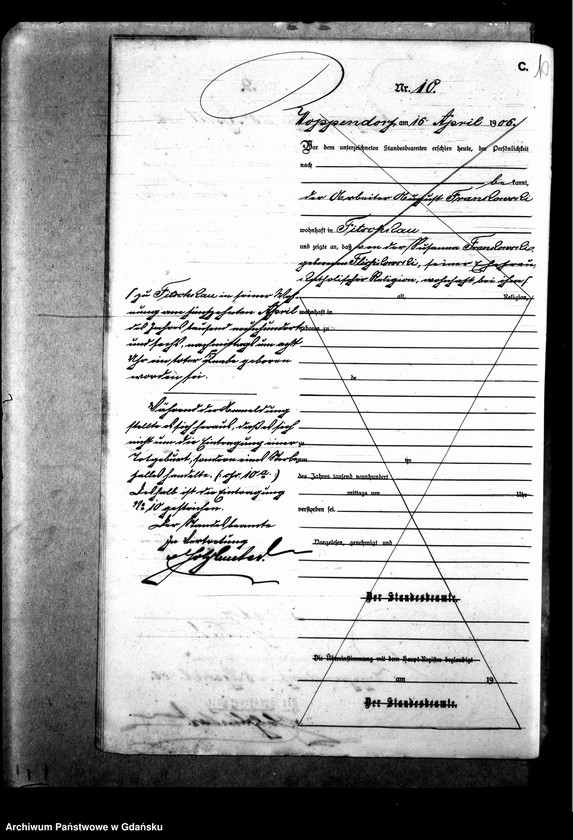 C. 10
Nr. 10.
Koppendorf, am 16. April 1906.
Vor dem unterzeichneten Standesbeamten erschien heute, der Persönlichkeit
nach
bekannt,
der Arbeiter August
wohnhaft in
und zeigte an, daß von der
geborenen seiner Ehefrau,
katholischer Religion, wohnhaft bei ihm
alt, Religion,
zu in seiner Woh-
nung am fünfzehnten April
wohnhaft in
des Jahres tausend neunhundert
geboren zu
und sechs, nachmittags um acht
Uhr ein toter Knabe geboren
worden sei.
de
Während der Anmeldung
stellte es sich heraus, daß es sich
nicht um die Eintragung einer
Totgeburt, sondern eines Sterbe-
zu
falles handelte.
des Jahres tausend neunhundert
Deshalb ist die Eintragung
mittags um Uhr
No 10 gestrichen.
verstorben sei.
Der Standesbeamte
In Vertretung
Vorgelesen, genehmigt und
Der Standesbeamte.
Die Übereinstimmung mit dem Haupt-Register beglaubigt
am 19
Der Standesbeamte.
Archiwum Państwowe w Gdańsku